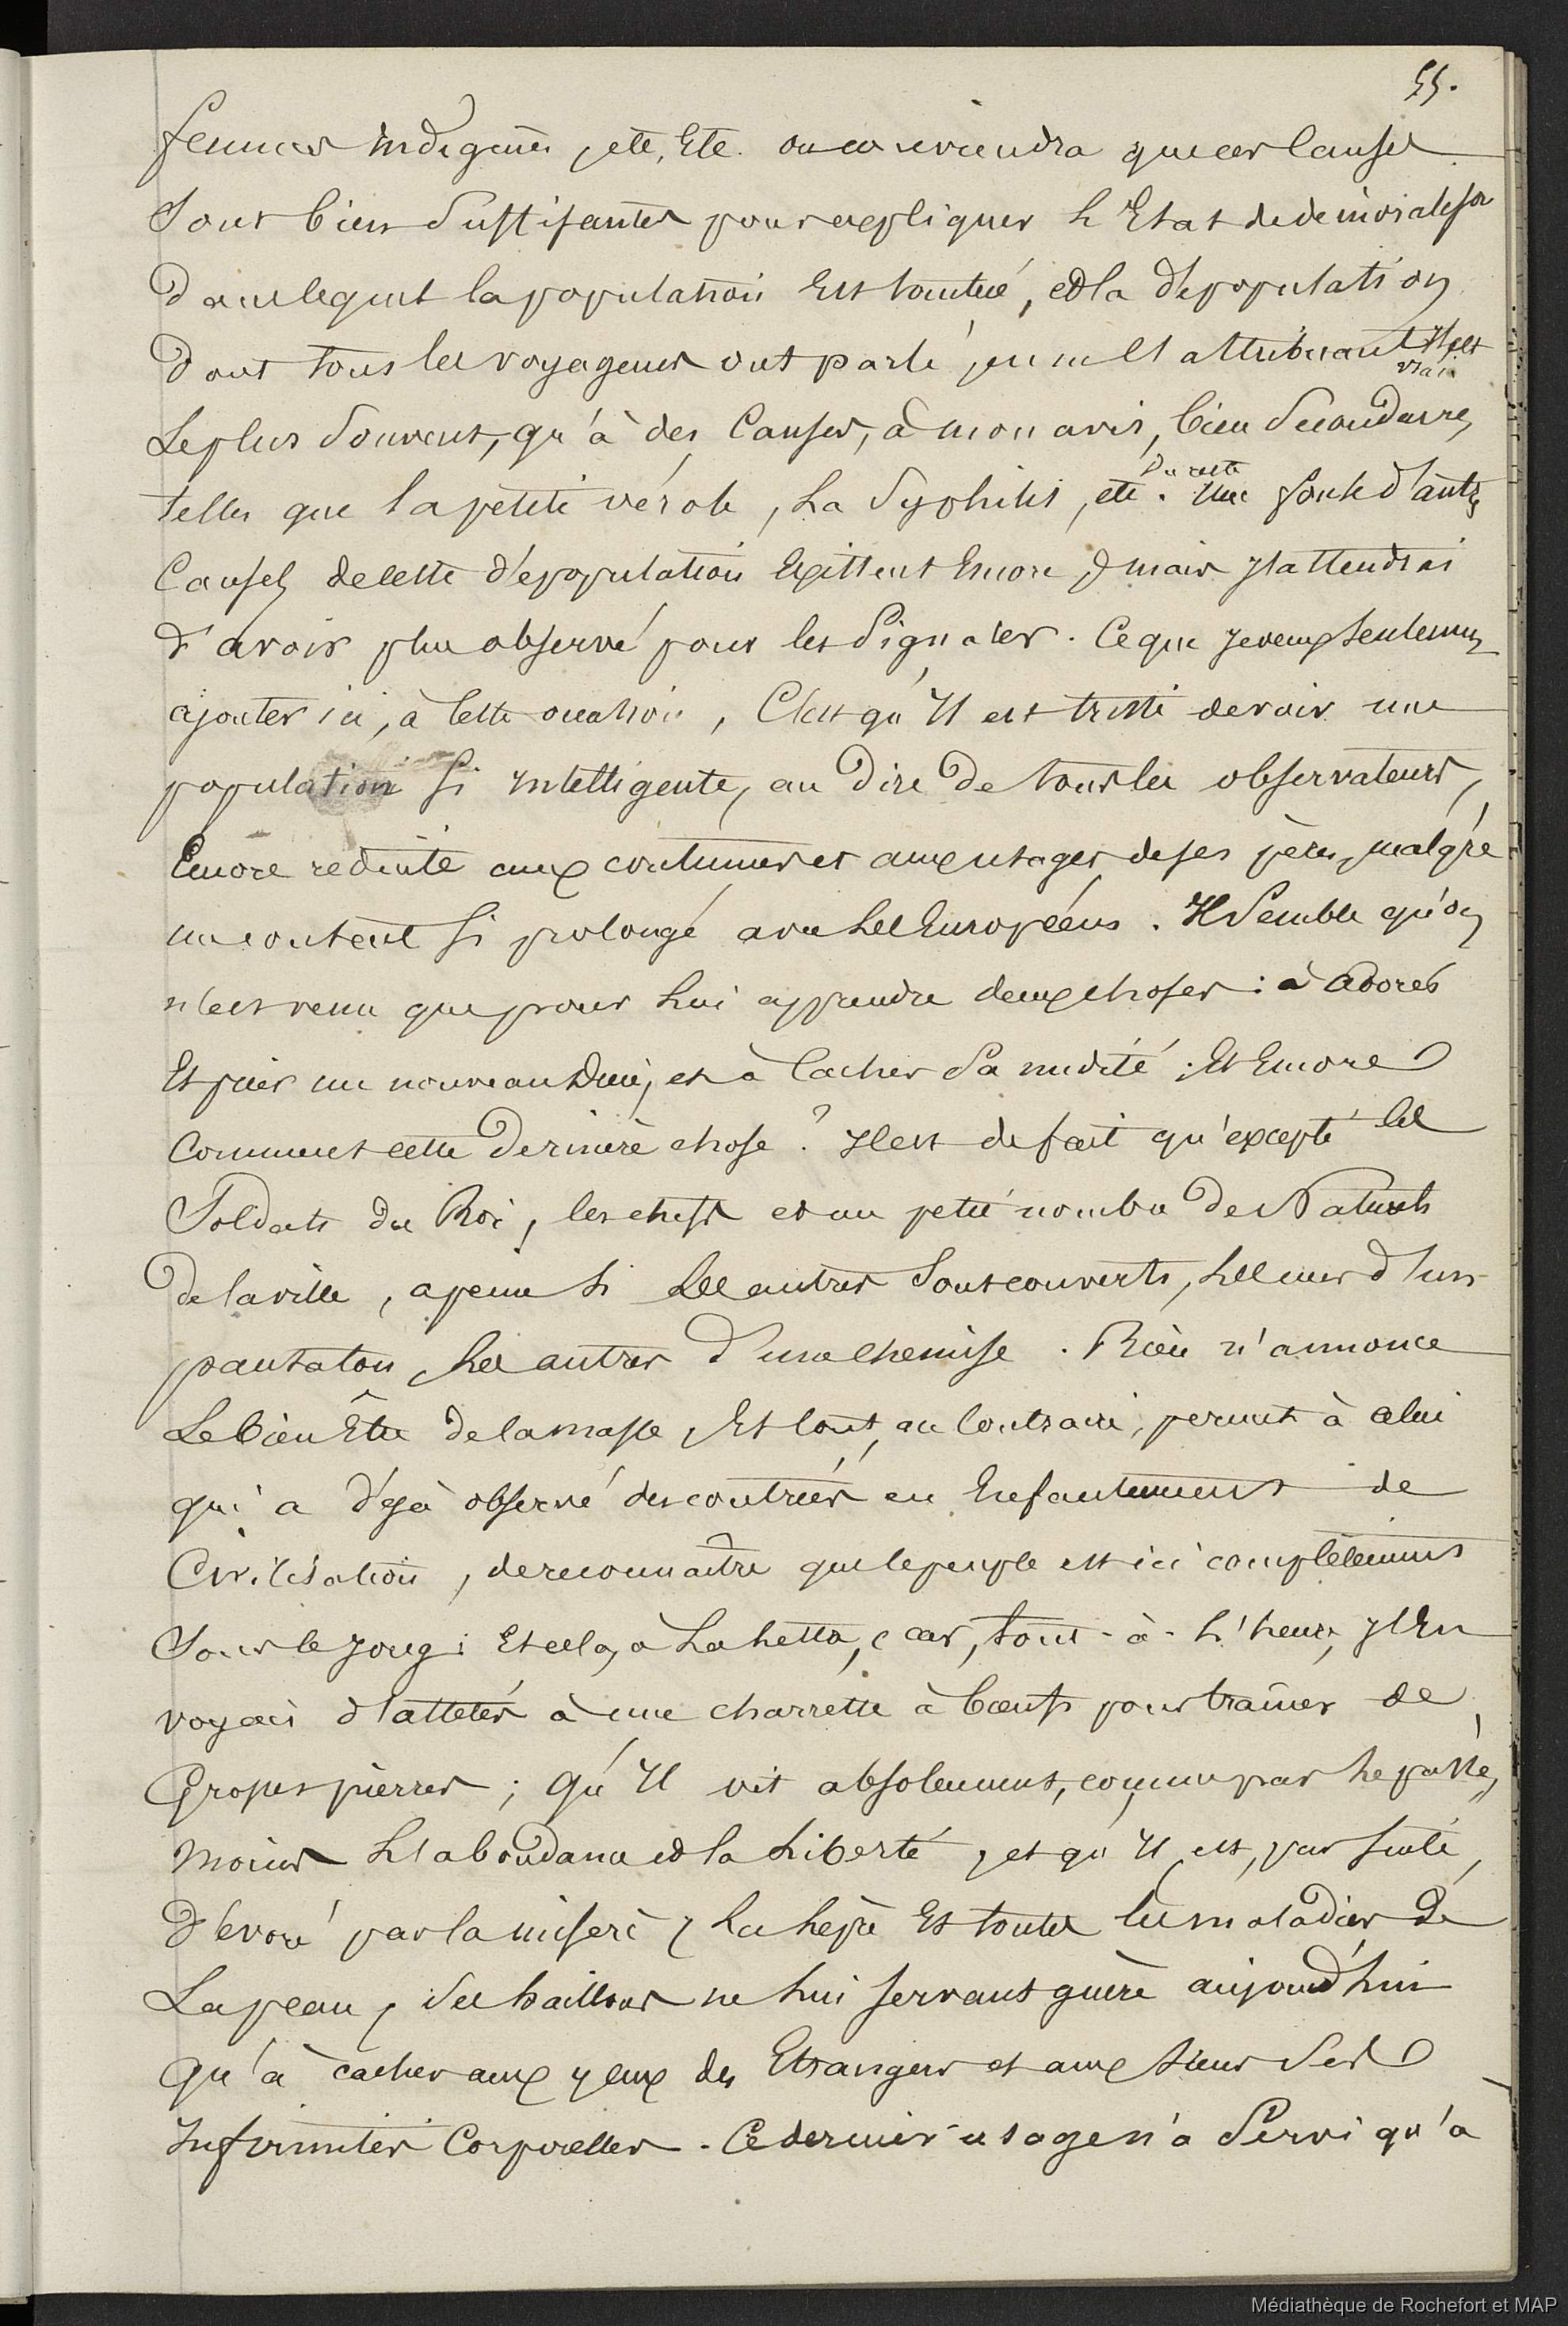 55.
femmes indigènes, etc, Etc. on conviendra que ces Causes
Sont bien Suffisantes pour expliquer L'Etat de démoralison
dans lequel la population Est tombée, et la dépopulation
dont tous les voyageurs ont parlé, en ne l'attribuant Il est
vrai
Le plus Souvent, qu'à des Causes, à mon avis, bien Secondaires,
telles que la petite vérole, La Syphilis, etc. Du reste Une foule d'autres
Causes de cette dépopulation Existent Encore, mais J'attendrai
d'avoir plus observé pour les Signaler. Ce que Je veux Seulement
ajouter ici, à Cette occasion, C'est qu'Il est triste de voir une
population Si intelligente, au Dire De tous les observateurs,
Encore réduite aux coutumes et aux usages de ses pères, malgré
un contact Si prolongé avec Les Européens. Il Semble qu'on
n'est venu que pour Lui apprendre deux choses : à adorer
Et prier un nouveau Dieu, et à Cacher Sa nudité ; Et Encore
Comment cette Dernière chose ? Il est de fait qu'excepté les
Soldats du Roi, les chefs et un petit nombre De Naturels
De la ville, a peine Si Les autres Sont couverts, Les uns d'un
pantalon, Les autres D'une chemise. Rien n'annonce
Le bien Être de la masse, Et tout, au Contraire, permet à celui
qui a déjà observé des contrées en Enfantement de
Civilisation, de reconnaître que le peuple est ici complètement
Sous le Joug ; Et cela, à la lettre, car, tout-à-L'heure, J'en
voyais d'attelés à une charrette à bœufs pour traîner de
Grosses pierres ; qu'Il vit absolument, comme par Le passé,
moins L'abondance et la Liberté, et qu'Il est, par suite,
Dévoré par la misère, La Lèpre Et toutes les maladies De
La peau, Ses haillons ne Lui servant guère aujourd'hui
qu'à cacher aux yeux des Etrangers et aux Siens Ses
Infirmités Corporelles. Ce dernier usage n'a Servi qu'à
Médiathèque de Rochefort et MAP